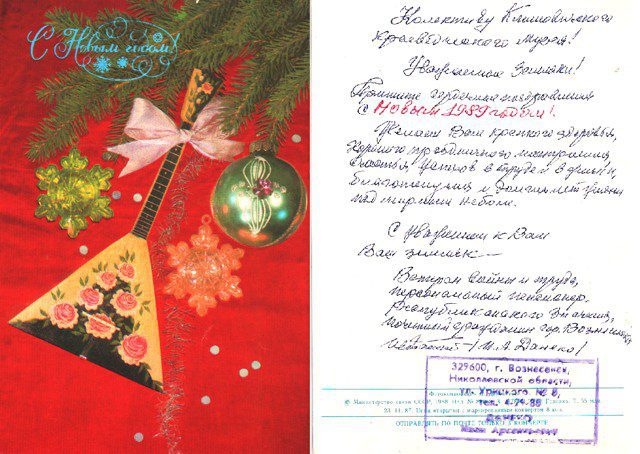 С Новым годом!
Колективу Климовичского
Краеведческого Музея!
Уважаемые Земляки!
Примите сердечные поздравления
С Новым 1989 годом!
Желаем Вам крепкого здоровья,
хорошего праздничного настроения
счастья, успехов в труде и в
благополучия и долгих лет жизни
под мирным небом.
С Уважением к Вам
Ваш земляк —
Ветеран войны и труда,
персональный пенсионер,
Республиканского Значения,
почетный гражданин гор. Вознесенска
/ И. А. Данеко /
329600, г. Вознесенск,
Николаевской области,
ул. Урицкого № 8,
тел. 4-74-88
ДАНЕКО
Иван Арсентьевич
© Министерство связи СССР, 1988
ОТПРАВЛЯТЬ ПО ПОЧТЕ ТОЛЬКО В КОНВЕРТЕ